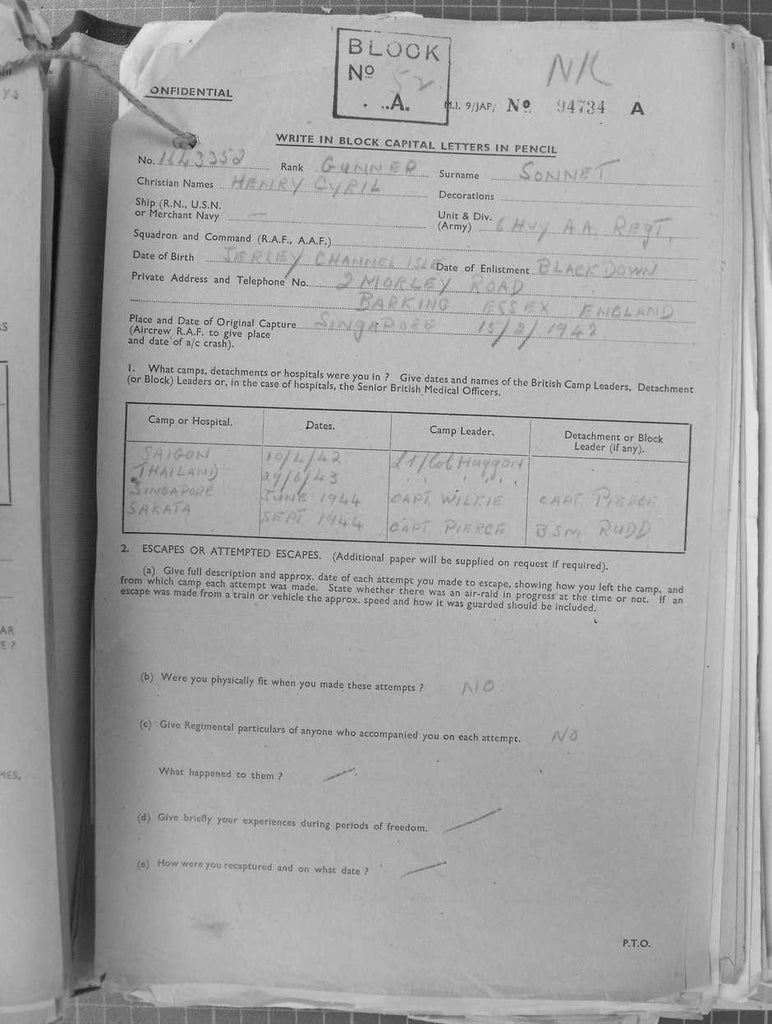 BLOCK
Nº 52
A.
NK
CONFIDENTIAL
M.I. 9/JAP/ Nº 94734 A
WRITE IN BLOCK CAPITAL LETTERS IN PENCIL
No. 1443352 Rank GUNNER Surname SONNET
Christian Names HENRY CYRIL Decorations
Ship (R.N., U.S.N. or Merchant Navy — Unit & Div. (Army) 6 HVY A.A. REGT.
Squadron and Command (R.A.F., A.A.F.)
Date of Birth JERSEY CHANNEL ISLE Date of Enlistment BLACKDOWN
Private Address and Telephone No. 2 MORLEY ROAD
BARKING ESSEX ENGLAND
Place and Date of Original Capture SINGAPORE 15/2/1942
(Aircrew R.A.F. to give place
and date of a/c crash).
1. What camps, detachments or hospitals were you in ? Give dates and names of the British Camp Leaders, Detachment
(or Block) Leaders or, in the case of hospitals, the Senior British Medical Officers.
Camp or Hospital. Dates. Camp Leader. Detachment or Block Leader (if any).
SAIGON 10/4/42 Lt/Col Huggon
THAILAND 24/6/43 " " "
SINGAPORE JUNE 1944 CAPT. WILKIE CAPT PIERCE
SAKATA SEPT 1944 CAPT PIERCE BSM RUDD
2. ESCAPES OR ATTEMPTED ESCAPES. (Additional paper will be supplied on request if required).
(a) Give full description and approx. date of each attempt you made to escape, showing how you left the camp, and
from which camp each attempt was made. State whether there was an air-raid in progress at the time or not. If an
escape was made from a train or vehicle the approx. speed and how it was guarded should be included.
(b) Were you physically fit when you made these attempts ? NO.
(c) Give Regimental particulars of anyone who accompanied you on each attempt. NO
What happened to them ?
(d) Give briefly your experiences during periods of freedom.
(e) How were you recaptured and on what date ?
P.T.O.